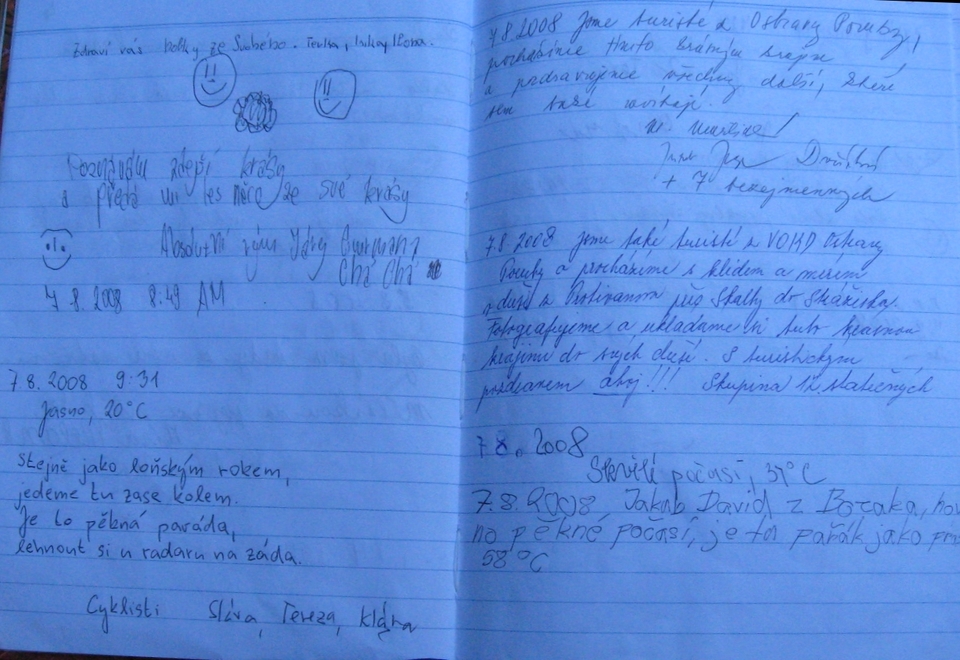 Zdraví vás holky ze
Poznávám zdejší krásy
a les něco ze své krásy
Absolutní
Chi Chi
7 8 2008 8:49 AM
7.8. 2008 9:31
Jasno, 20°C
Stejně jako loňským rokem,
jedeme tu zase kolem.
Je to pěkná paráda,
lehnout si u radaru na záda.
Cyklisti Sláva, Tereza, Klára
7.8 2008 Jsme turisté z Ostravy Poruby,
procházíme tímto krásným krajem
a pozdravujeme všechny další, kteří
sem také zavítají.
+ 7 bezejmenných
7.8.2008 Jsme také turisté z VOKD Ostravy
Poruby a procházíme s klidem a mírem
v duši z Protivanova přes Skalky do
Fotografujeme a ukládáme si tuto krásnou
krajinu do svých duší. S turistickým
pozdravem ahoj!!! Skupina 12 statečných
7 8. 2008
počasí, 37°C
7.8.2008, Jakub David z
no pěkné počasí, je to pařák jako
58°C